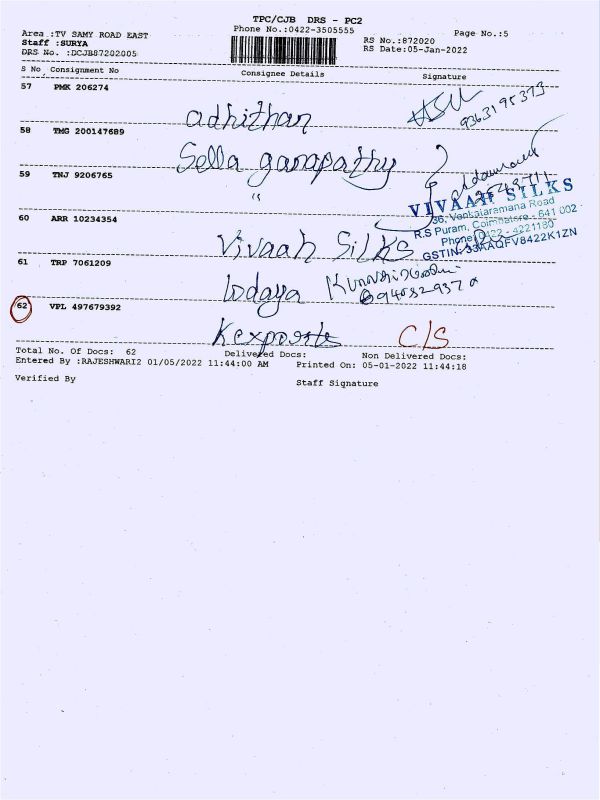 TPC/CJB DRS - PC2
Area :TV SAMY ROAD EAST
Phone No.:0422-3505555
Page No.:5
Staff :SURYA
RS No.:872020
DRS No. :DCJB87202005
RS Date:05-Jan-2022
S No Consignment No Consignee Details Signature
57 PMK 206274
adhithan
9363195373
58 TMG 200147689
Sella ganapathy
59 TNJ 9206765
"
VIVAAH SILKS
36, Venkataramana Road
R.S Puram, Coimbatore - 641 002
Phone: 0422 - 4221180
GSTIN: 33AAQFV8422K1ZN
60 ARR 10234354
Vivaah Silks
61 TRP 7061209
lodaya
62 VPL 497679392
K exports C/S
Total No. Of Docs: 62 Delivered Docs: Non Delivered Docs:
Entered By :RAJESHWARI2 01/05/2022 11:44:00 AM Printed On: 05-01-2022 11:44:18
Verified By Staff Signature